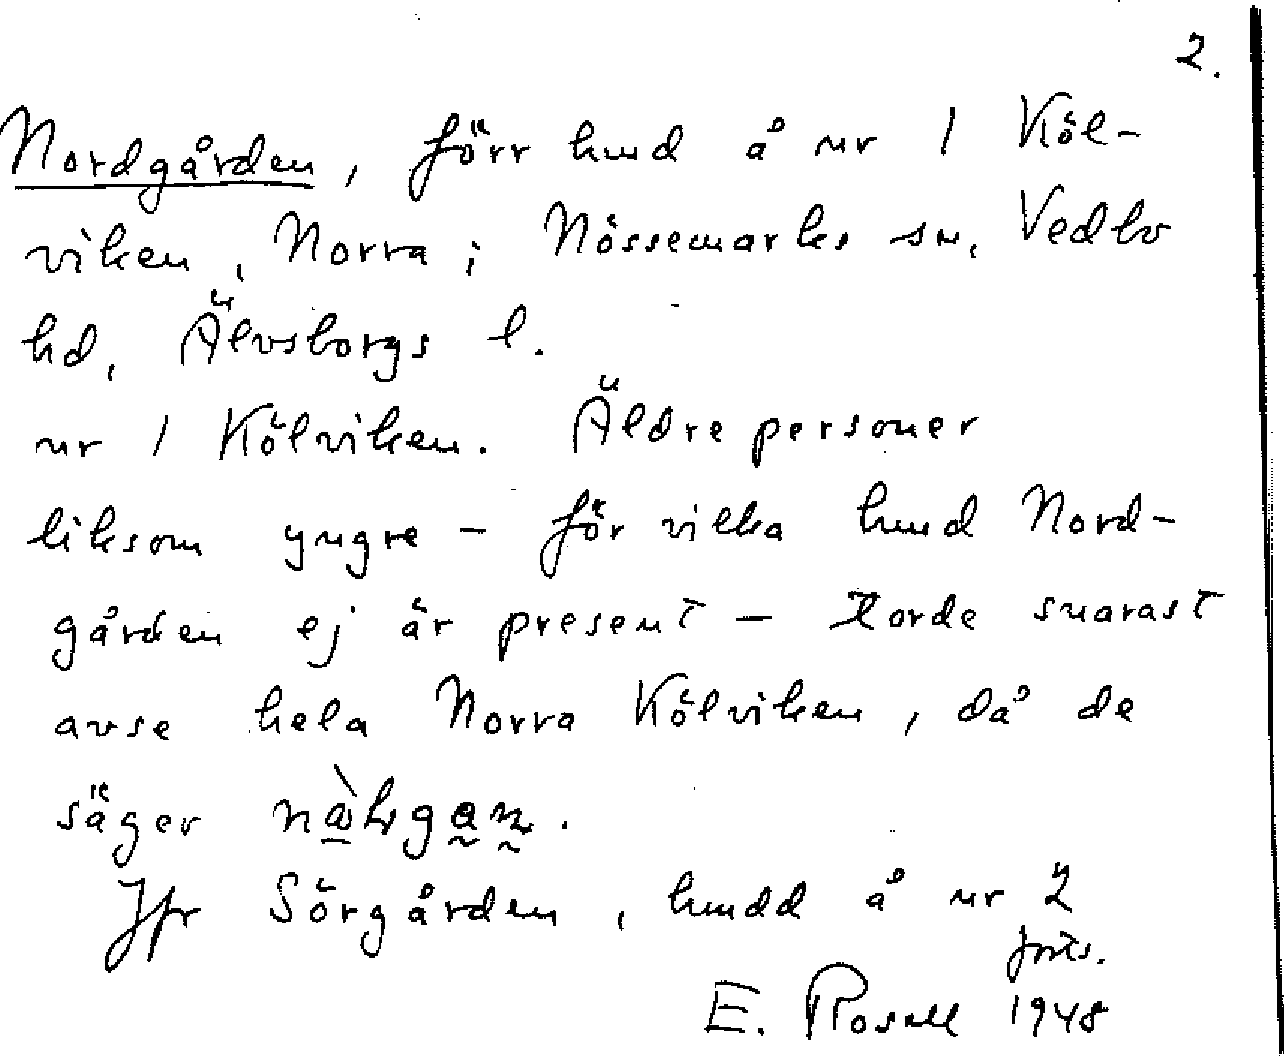 2.
Nordgården, förr hmd å nr 1 Köl-
viken, Norra; Nössemarks sn, Vedbo
hd, Älvsborgs l.
nr 1 Kölviken. Äldre personer
liksom yngre - för vilka hmd Nord-
gården ej är present - torde snarast
avse hela Norra Kölviken, då de
säger
Jfr Sörgården, hmdd å nr 2
forts.
E. Rosell 1948